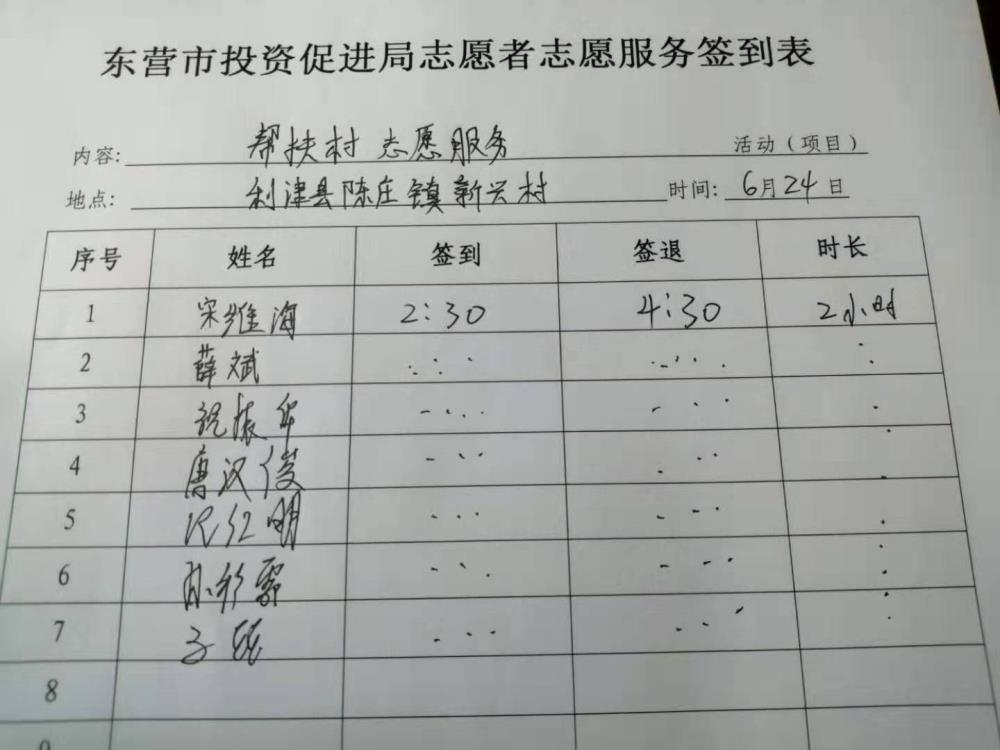 东营市投资促进局志愿者志愿服务签到表
内容: 帮扶村 志愿服务 活动（项目）
地点: 利津县陈庄镇新兴村 时间: 6月24日
序号 姓名 签到 签退 时长
1 宋维海 2:30 4:30 2小时
2 薛斌
3 祝振华
4 唐汉俊
5 红明
6 孙彩霞
7
8
9